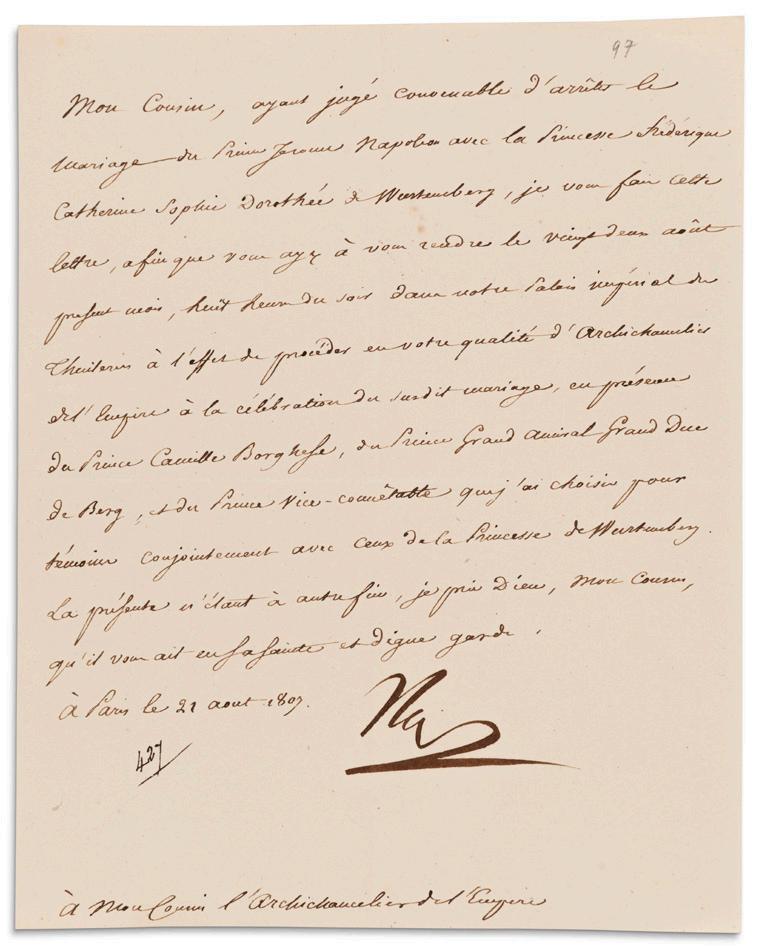 97
Mon Cousin, ayant jugé convenable d'arrêter le
mariage du Prince Jerome Napoleon avec la Princesse Frédérique
Catherine Sophie Dorothée de Wurtemberg, je vous fais cette
lettre, afin que vous ayez à vous rendre le vingt deux août
present mois, huit heures du soir dans notre Palais impérial des
Thuileries à l'effet de procéder en votre qualité d'Archichancelier
de l'Empire à la célébration du susdit mariage, en présence
du Prince Camille Borghese, du Prince Grand Amiral Grand Duc
de Berg, et du Prince Vice-connétable que j'ai choisis pour
témoins conjointement avec ceux de la Princesse de Wurtemberg.
La présente n'étant à autre fin, je prie Dieu, Mon Cousin,
qu'il vous ait en sa sainte et digne garde.
à Paris le 21 aout 1807.
Nap
427
à Mon Cousin l'Archichancelier de l'Empire